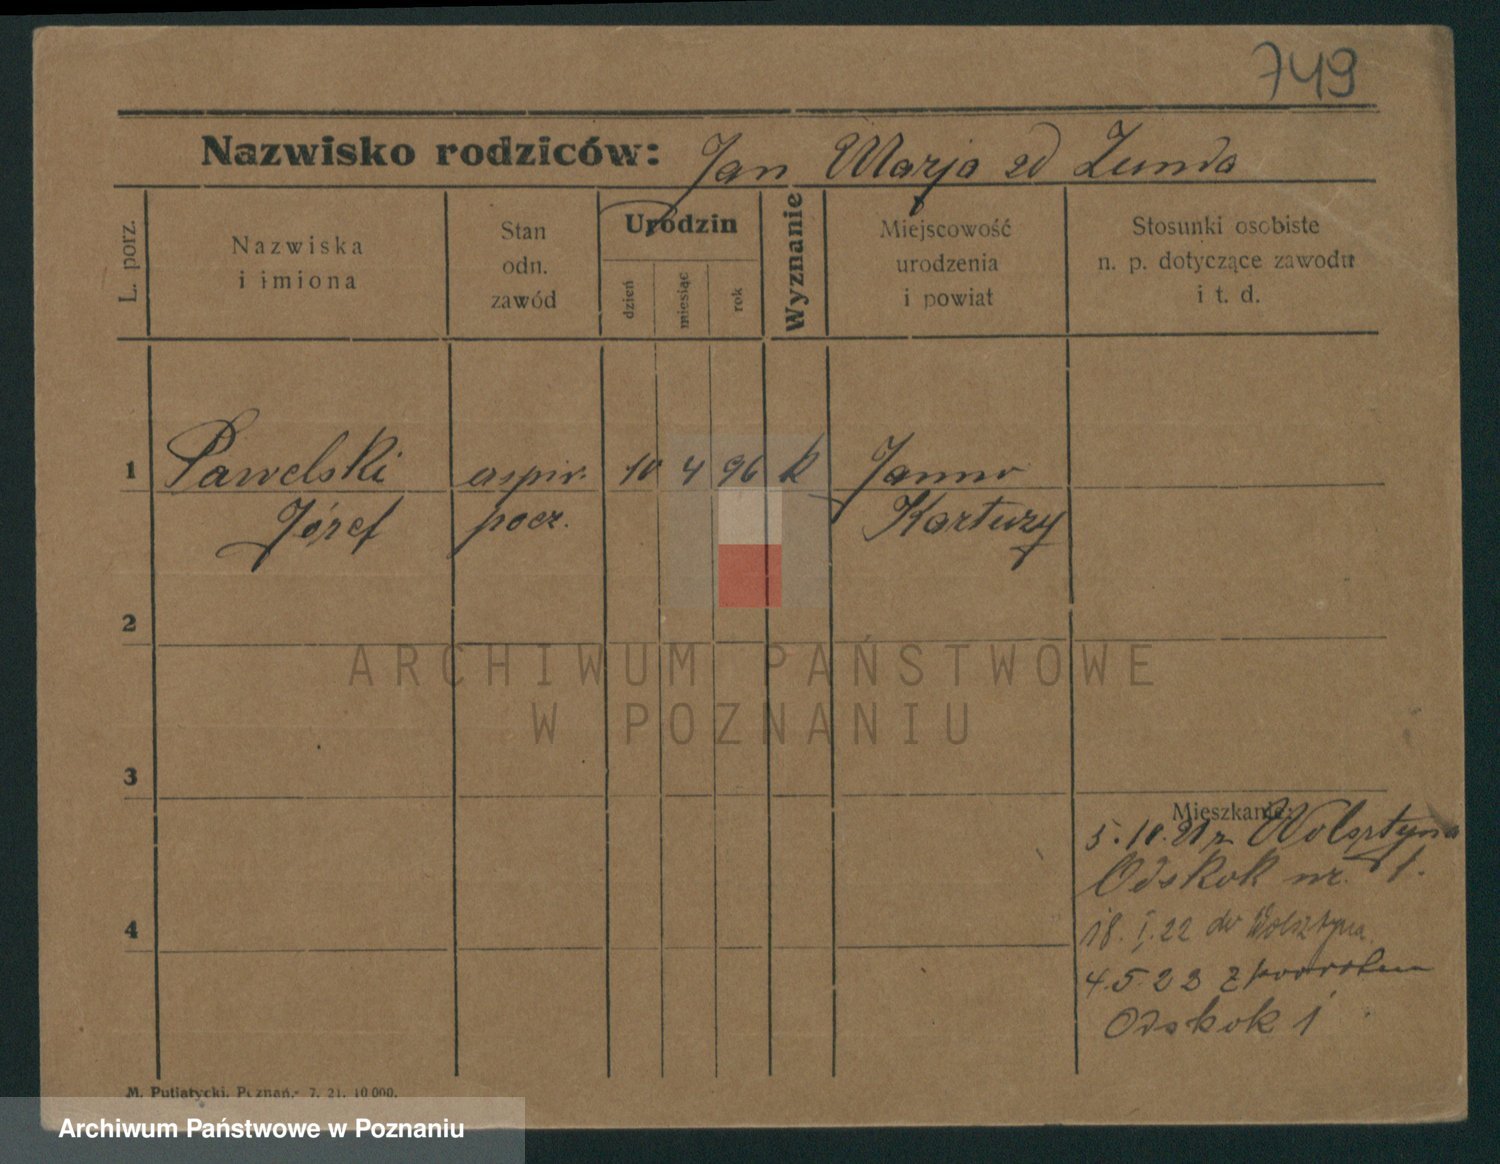 749
Nazwisko rodziców: Jan Marja zd Zunda
L. porz.
Nazwiska
i imiona
Stan
odn.
zawód
Urodzin
dzień
miesiąc
rok
Wyznanie
Miejscowość
urodzenia
i powiat
Stosunki osobiste
n. p. dotyczące zawodu
i t. d.
1 Pawelski aspir. 10 4 96 k
Józef pocz. Kartuzy
2
ARCHIWUM PAŃSTWOWE
W POZNANIU
3
Mieszkanie:
5.10.21 z Wolsztyna
Odskok nr. 1.
4
18. I. 22 do Wolsztyna
4.5.22 z powrotem
Odskok 1
M. Putiatycki, Poznań,- 7. 21. 10 000.
Archiwum Państwowe w Poznaniu